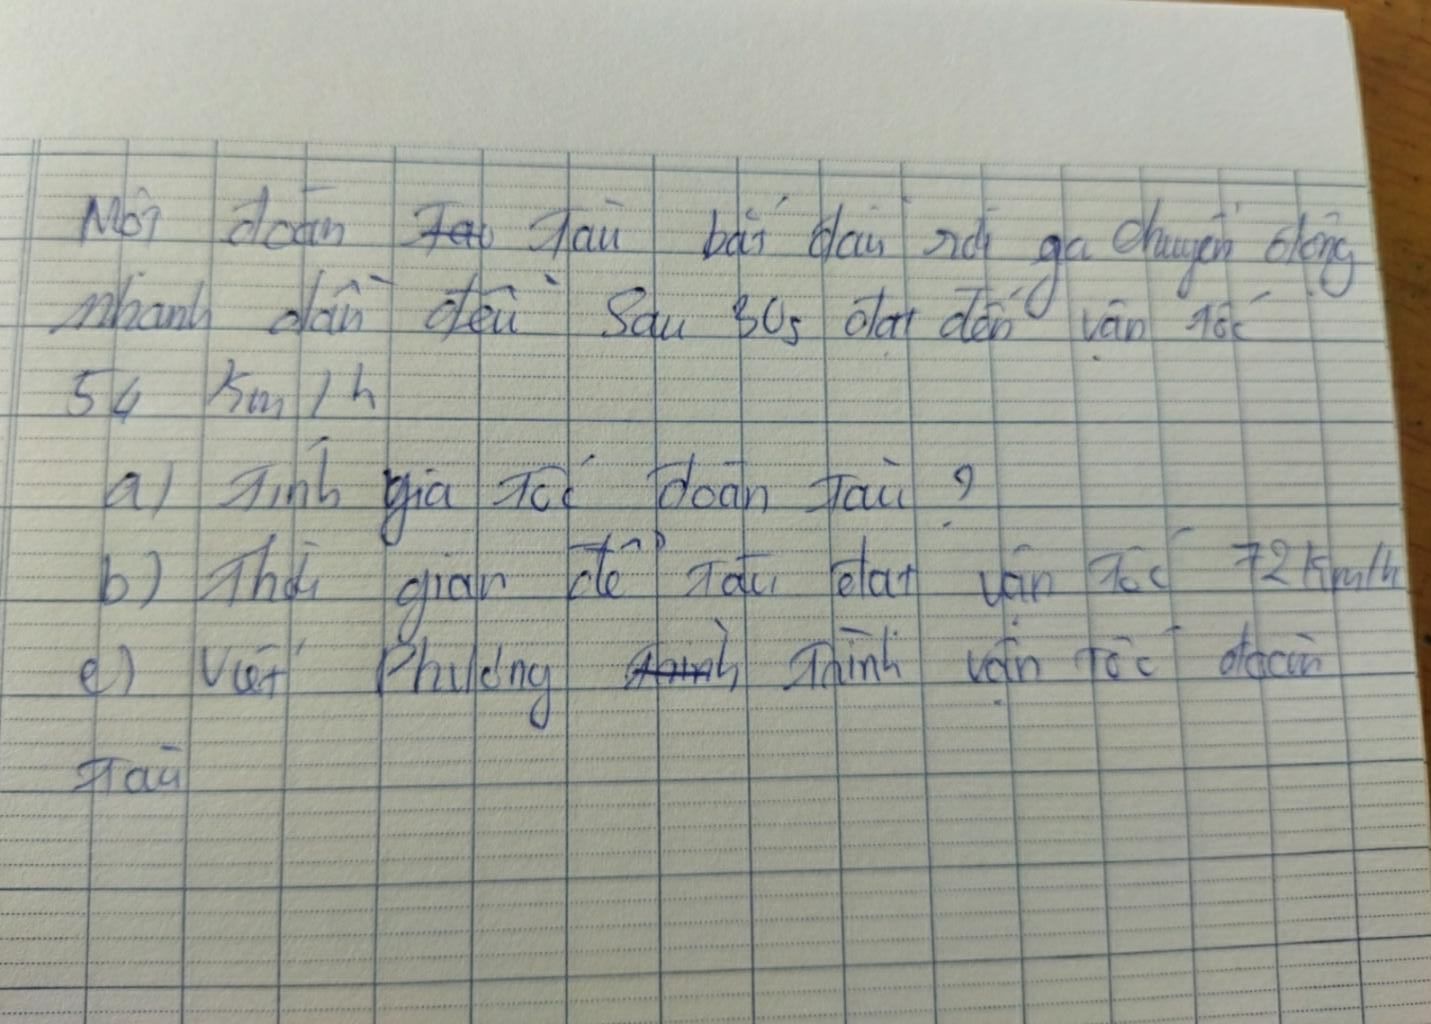 Một đoàn tàu bắt đầu rời ga chuyển động
nhanh dần đều Sau 30s đạt đến vận tốc
54 km/h
a) Tính gia tốc đoàn tàu ?
b) Thời gian để tàu đạt vận tốc 72km/h
c) Viết Phương trình vận tốc đoàn
tàu